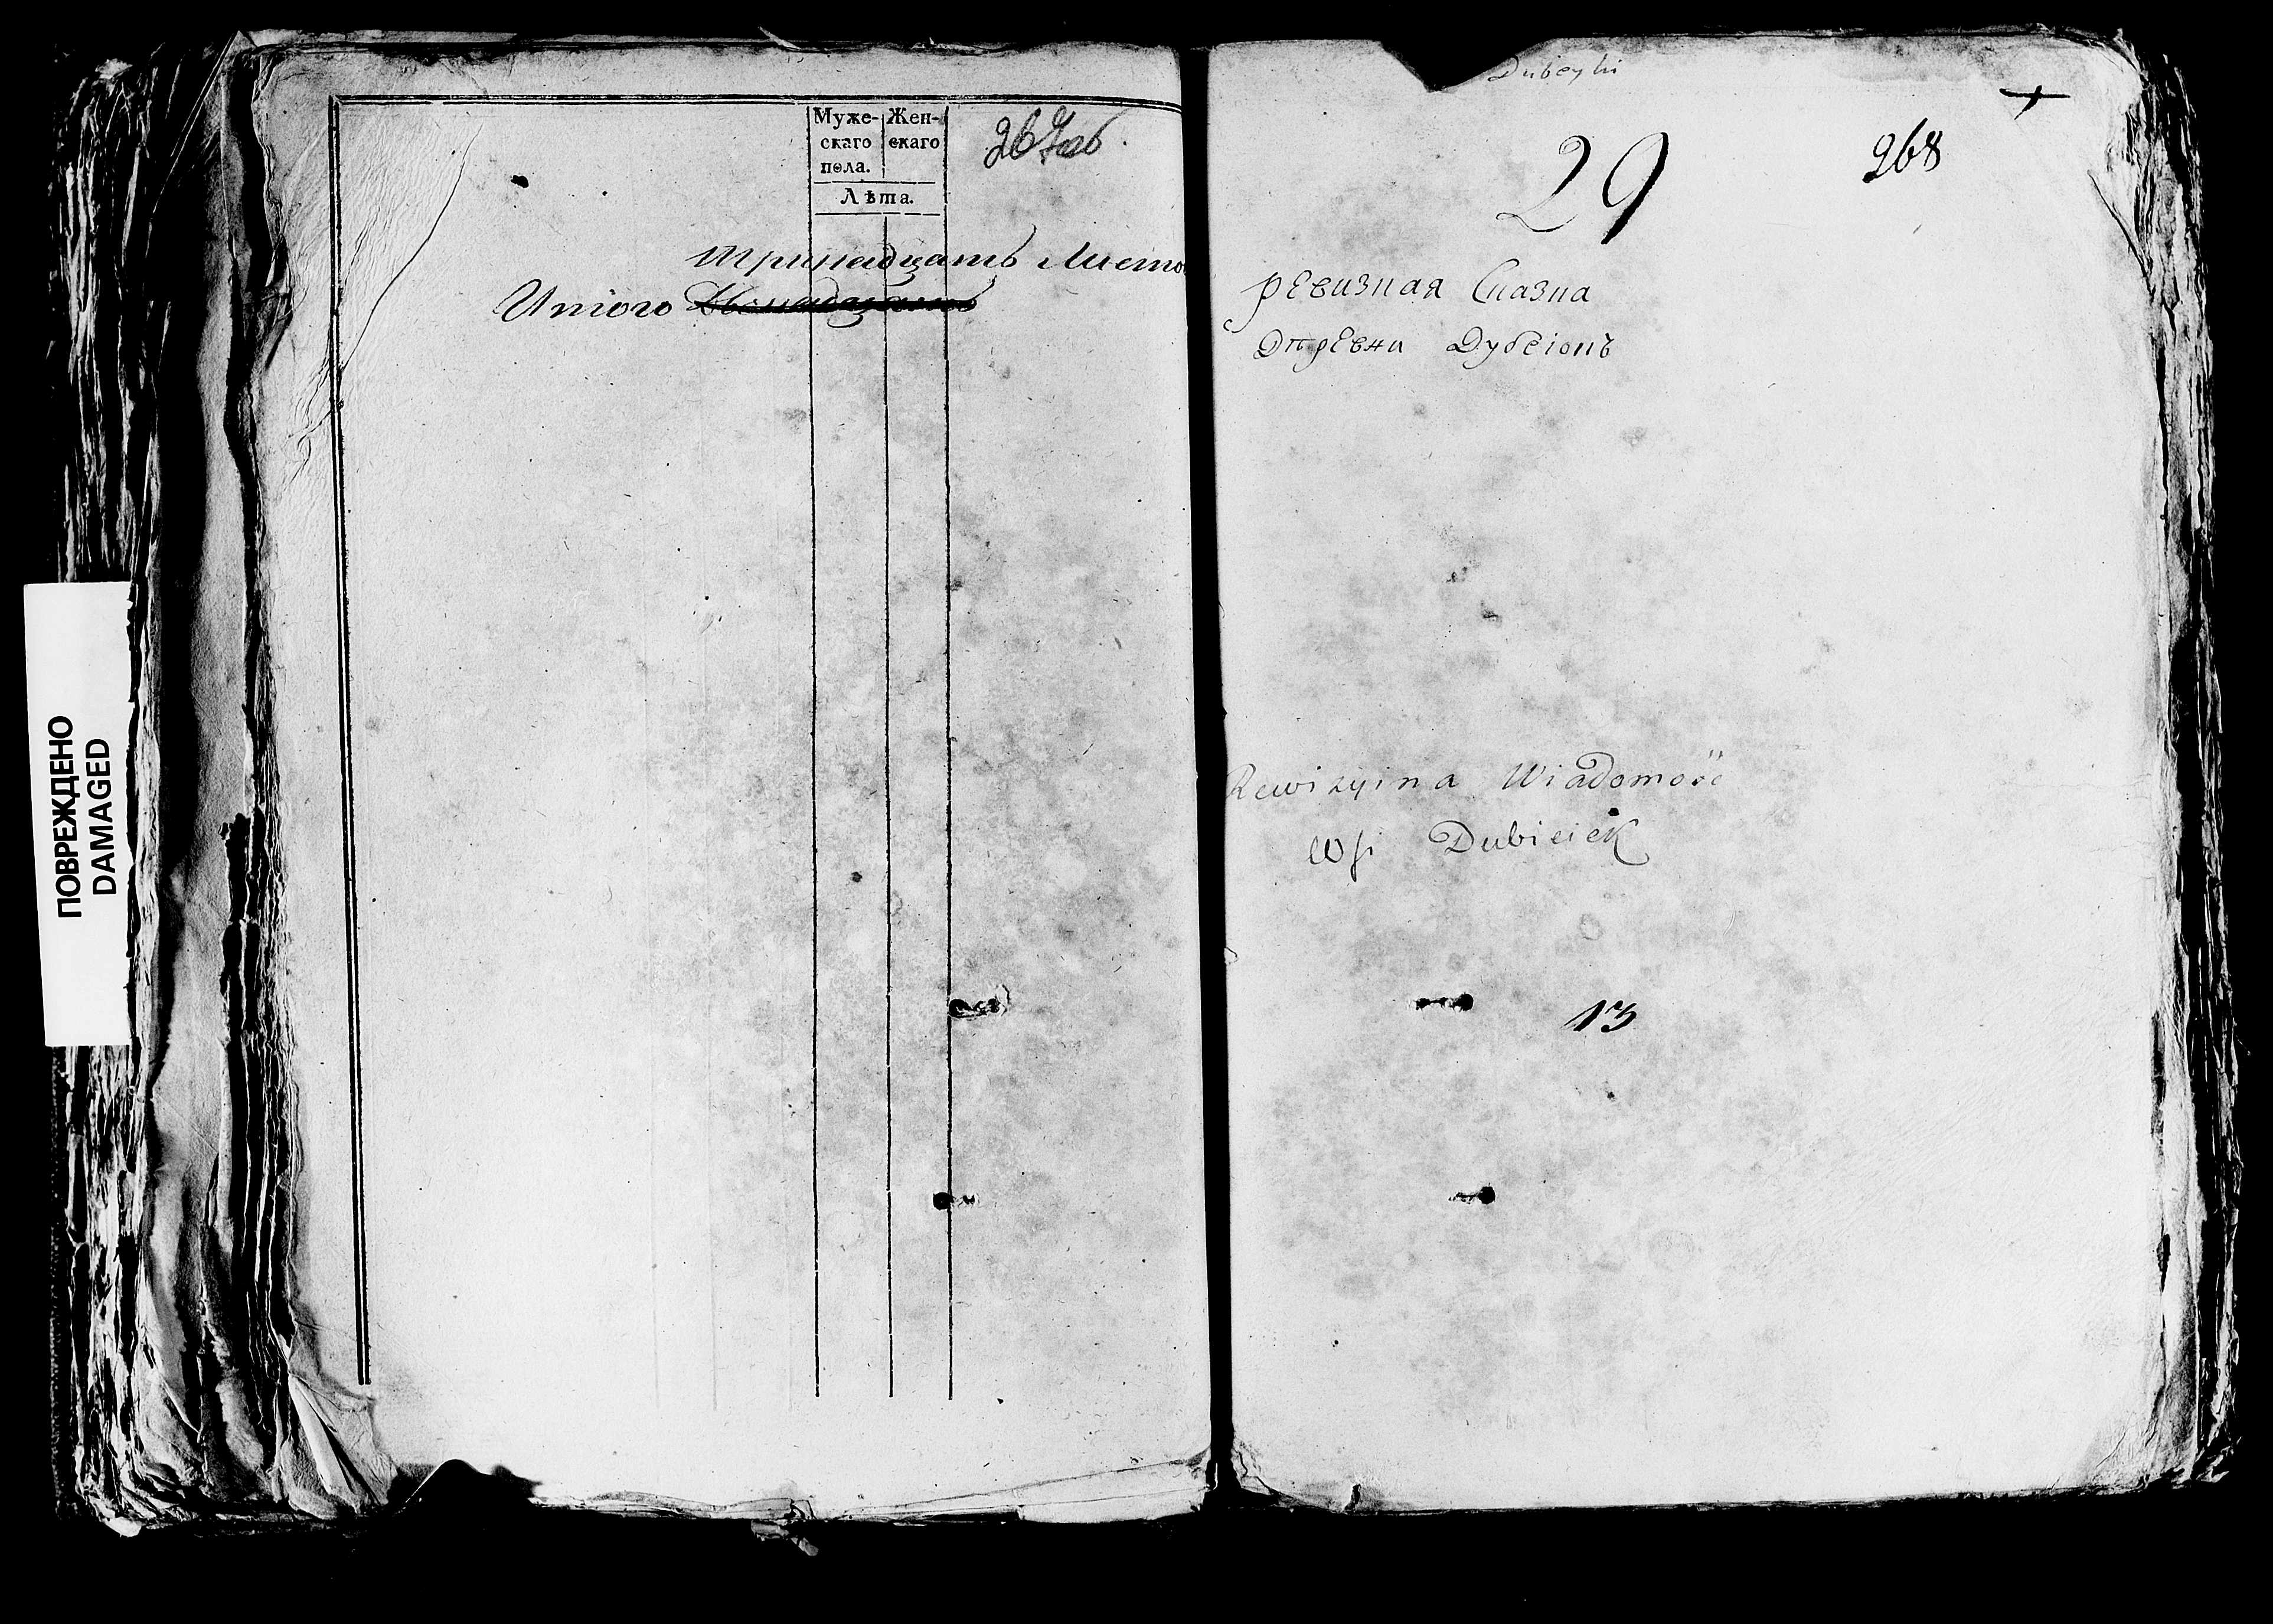 ПОВРЕЖДЕНО
DAMAGED
Муже-
скаго
пола.
Жен-
скаго
Лѣта.
267об.
тринадцать Листо
Итого Двенадцать
Dubeyki
268
29
ревизная Сказка
Wiadomość
Rewizyina Wiadomość
wsi Dubieiek
13